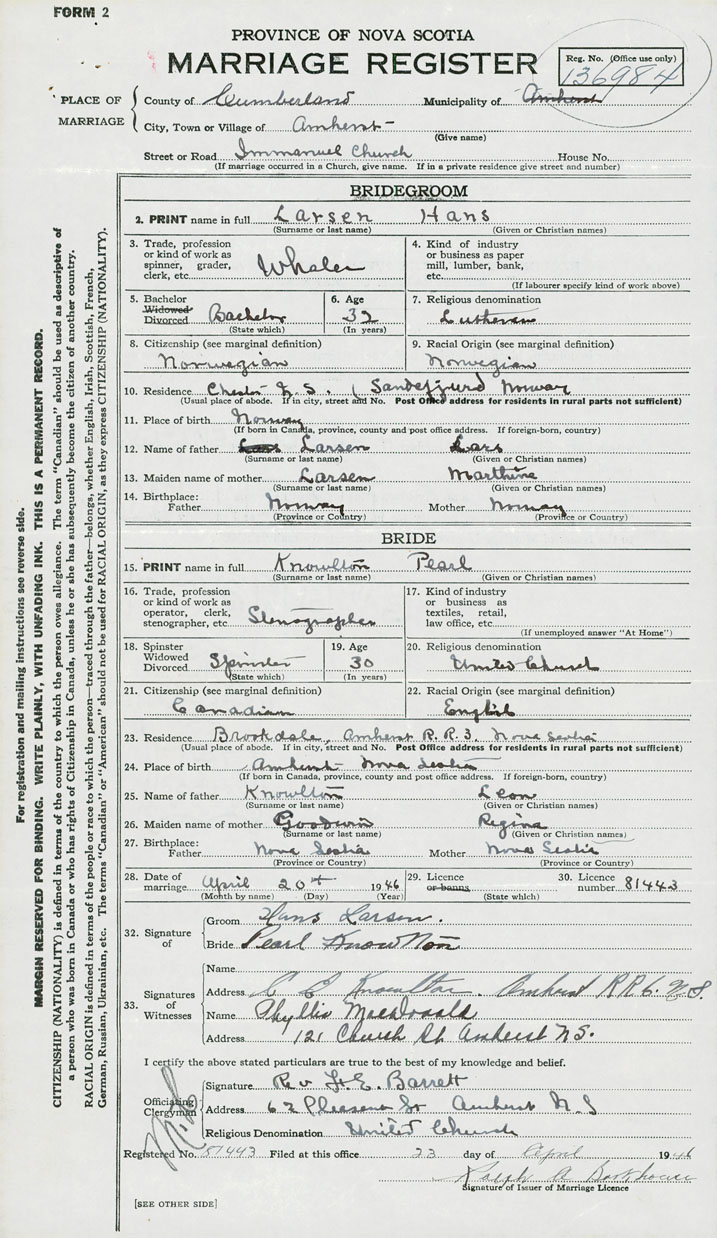 FORM 2
PROVINCE OF NOVA SCOTIA
MARRIAGE REGISTER
Reg. No. (Office use only)
136984
PLACE OF MARRIAGE
County of Cumberland Municipality of Amherst
City, Town or Village of Amherst
(Give name)
Street or Road Immanuel Church House No.
(If marriage occurred in a Church, give name. If in a private residence give street and number)
BRIDEGROOM
2. PRINT name in full Larsen Hans
(Surname or last name) (Given or Christian names)
3. Trade, profession or kind of work as spinner, grader, clerk, etc. Whaler
4. Kind of industry or business as paper mill, lumber, bank, etc.
(If labourer specify kind of work above)
5. Bachelor Widowed Divorced Bachelor
(State which)
6. Age 32
(In years)
7. Religious denomination
Lutheran
8. Citizenship (see marginal definition)
Norwegian
9. Racial Origin (see marginal definition)
Norwegian
10. Residence Chester N.S. ( Sandefjurd Norway
(Usual place of abode. If in city, street and No. Post Office address for residents in rural parts not sufficient)
11. Place of birth Norway
(If born in Canada, province, county and post office address. If foreign-born, country)
12. Name of father Lars Larsen Lars
(Surname or last name) (Given or Christian names)
13. Maiden name of mother Larsen Marthine
(Surname or last name) (Given or Christian names)
14. Birthplace:
Father Norway Mother Norway
(Province or Country) (Province or Country)
BRIDE
15. PRINT name in full Knowlton Pearl
(Surname or last name) (Given or Christian names)
16. Trade, profession or kind of work as operator, clerk, stenographer, etc Stenographer
17. Kind of industry or business as textiles, retail, law office, etc.
(If unemployed answer "At Home")
18. Spinster Widowed Divorced Spinster
(State which)
19. Age 30
(In years)
20. Religious denomination
United Church
21. Citizenship (see marginal definition)
Canadian
22. Racial Origin (see marginal definition)
English
23. Residence Brookdale, Amherst R.R.3, Nova Scotia
(Usual place of abode. If in city, street and No. Post Office address for residents in rural parts not sufficient)
24. Place of birth Amherst Nova Scotia
(If born in Canada, province, county and post office address. If foreign-born, country)
25. Name of father Knowlton Leon
(Surname or last name) (Given or Christian names)
26. Maiden name of mother Goodwin Regina
(Surname or last name) (Given or Christian names)
27. Birthplace:
Father Nova Scotia Mother Nova Scotia
(Province or Country) (Province or Country)
28. Date of marriage. April 20th 1946
(Month by name) (Day) (Year)
29. Licence or banns
(State which)
30. Licence number 81443
32. Signature of
Groom Hans Larsen.
Bride Pearl Knowlton
33. Signatures of Witnesses
Name
Address C E Knowlton. Amherst RR6. N.S.
Name Phyllis MacDonald
Address 121 Church St. Amherst N.S.
I certify the above stated particulars are true to the best of my knowledge and belief.
Officiating Clergyman
Signature Rev H.E. Barrett
Address 62 Pleasant St Amherst N.S
Religious Denomination United Church
Registered No. 81443 Filed at this office 23 day of April 1946
Ralph A
Signature of Issuer of Marriage Licence
[SEE OTHER SIDE]
For registration and mailing instructions see reverse side.
MARGIN RESERVED FOR BINDING. WRITE PLAINLY, WITH UNFADING INK. THIS IS A PERMANENT RECORD.
CITIZENSHIP (NATIONALITY) is defined in terms of the country to which the person owes allegiance. The term "Canadian" should be used as descriptive of
a person who was born in Canada or who has rights of Citizenship in Canada, unless he or she has subsequently become the citizen of another country.
RACIAL ORIGIN is defined in terms of the people or race to which the person—traced through the father—belongs, whether English, Irish, Scottish, French,
German, Russian, Ukrainian, etc. The terms "Canadian" or "American" should not be used for RACIAL ORIGIN, as they express CITIZENSHIP (NATIONALITY).